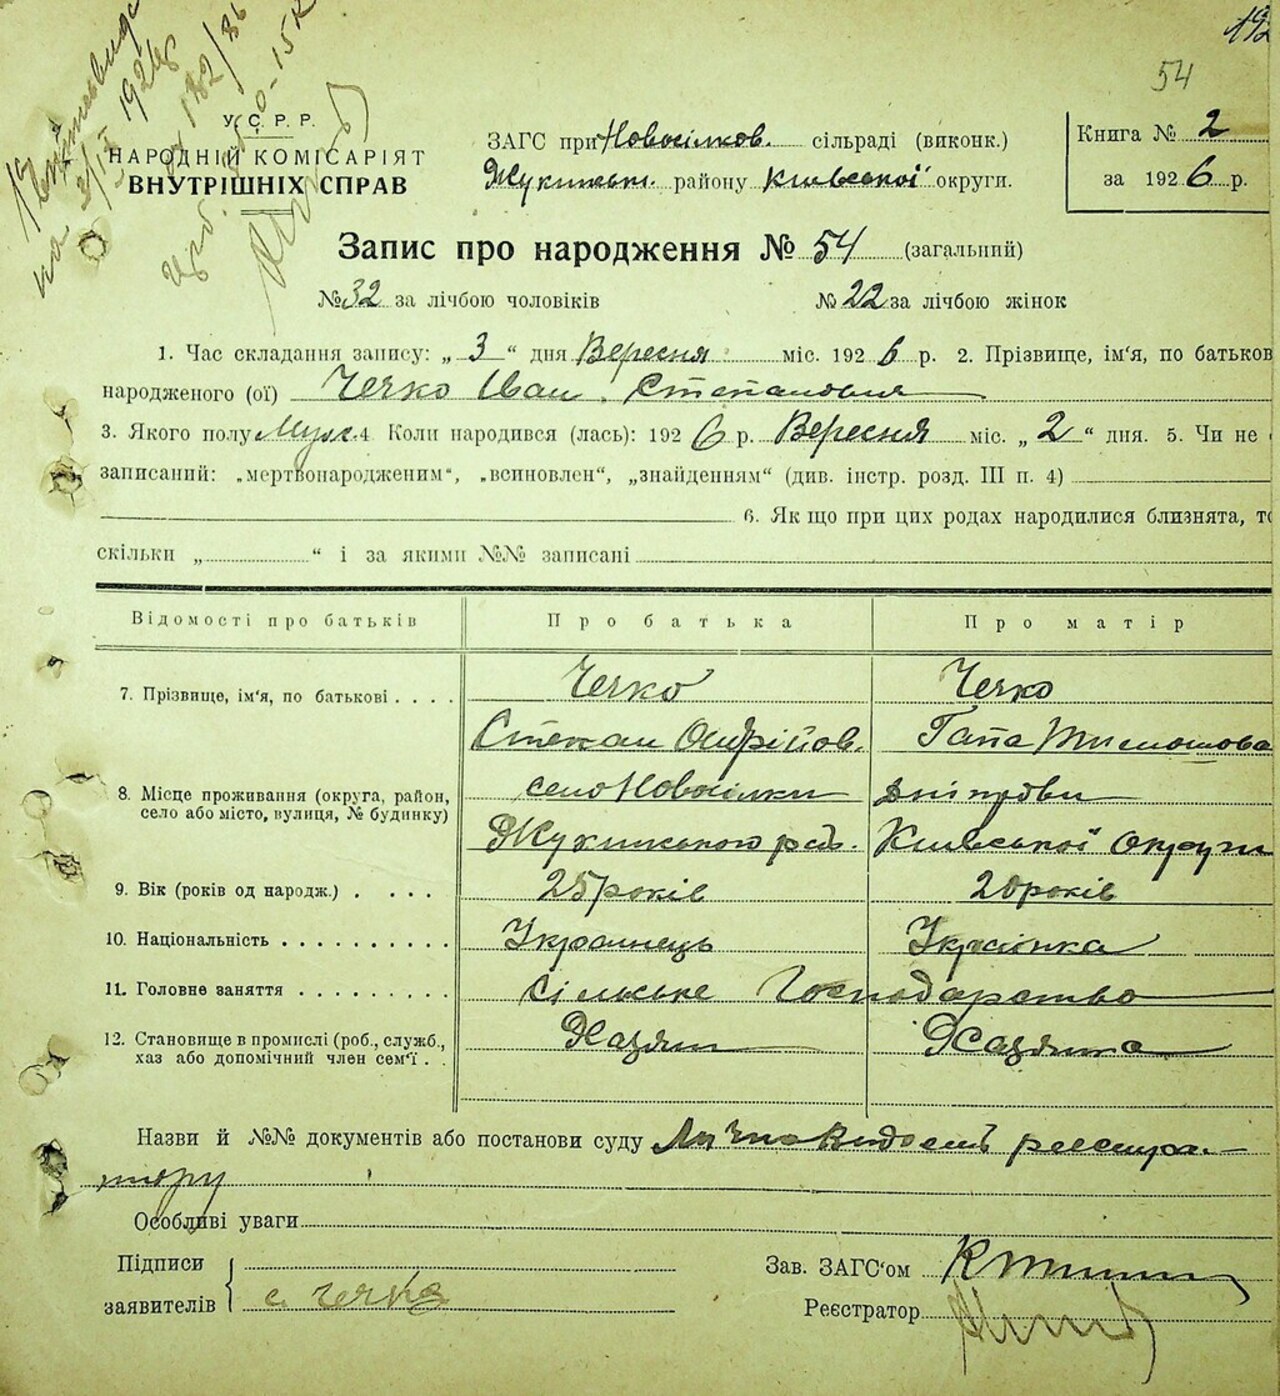 192
54
У. С. Р. Р.
НАРОДНІЙ КОМІСАРІЯТ
ВНУТРІШНІХ СПРАВ
ЗАГС при Новосілков. сільраді (виконк.)
Жукинськ. району Київської округи.
Книга № 2
за 1926 р.
Запис про народження № 54 (загальний)
№ 32 за лічбою чоловіків № 22 за лічбою жінок
1. Час складання запису: „ 3 “ дня Вересня міс. 1926 р. 2. Прізвище, ім'я, по батьков
народженого (ої) Чечко Іван. Степанович
3. Якого полу Муж. 4 Коли народився (лась): 1926 р. Вересня міс. „ 2 “ дня. 5. Чи не
записаний: „мертвонародженим“, „всиновлен“, „знайденням“ (див. інстр. розд. III п. 4)
6. Як що при цих родах народилися близнята, то
скільки „ “ і за якими №№ записані
Відомості про батьків Про батька Про матір
7. Прізвище, ім'я, по батькові . . . . Чечко Чечко
Степан Онрійов. Гапа Тимошова
8. Місце проживання (округа, район, село Новосілки Дніпрови
село або місто, вулиця, № будинку)
Жукинського рай. Київської Округи
9. Вік (років од народж.) . . . . 25 років 20 років
10. Національність . . . . . . . . . . Українець Українка
11. Головне заняття . . . . . . . . . сільське Господарство
12. Становище в промислі (роб., служб., Хазяин Хазяика
хаз або допомічний член сем'ї . .
Назви й №№ документів або постанови суду Личновидомъ реестра-
тору
Особливі уваги
Підписи
заявителів С. Чечко
Зав. ЗАГС'ом
Реєстратор